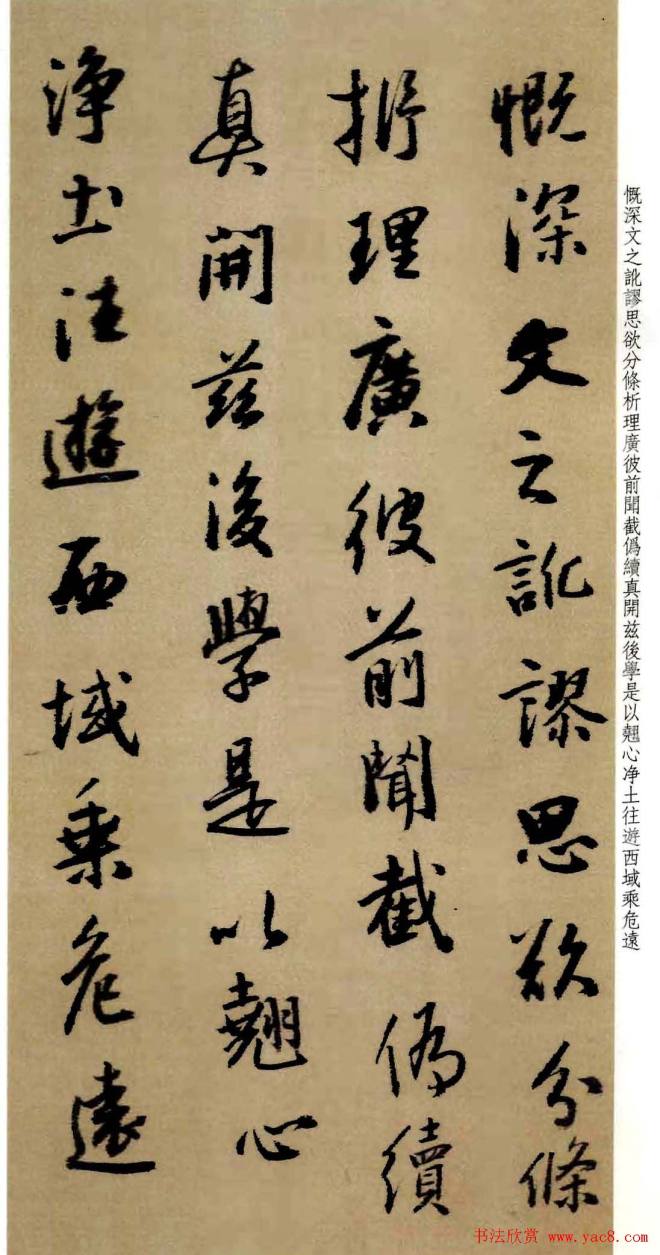 慨深文之訛謬思欲分條
析理廣彼前聞截偽續
真開茲後學是以翹心
淨土往遊西域乘危遠
慨深文之訛謬思欲分條析理廣彼前聞截僞續真開兹後學是以翹心净土往遊西域乘危遠
书法欣赏 www.yac8.com